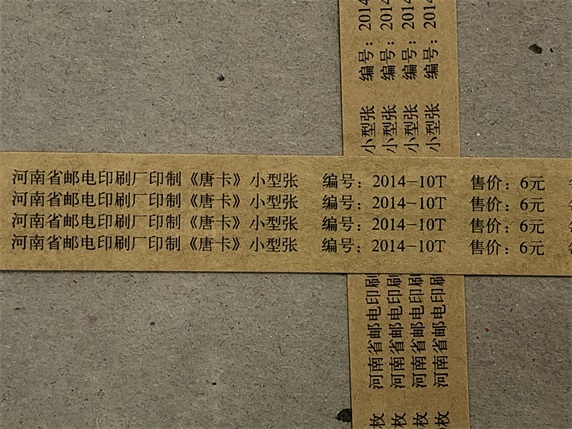 河南省邮电印刷厂印制《唐卡》小型张 编号：2014-10T 售价：6元
河南省邮电印刷厂印制《唐卡》小型张 编号：2014-10T 售价：6元
河南省邮电印刷厂印制《唐卡》小型张 编号：2014-10T 售价：6元
河南省邮电印刷厂印制《唐卡》小型张 编号：2014-10T 售价：6元
枚 河南省邮电印刷
小型张 编号：2014
枚 河南省邮电印刷
小型张 编号：2014
枚 河南省邮电印刷
小型张 编号：2014
枚 河南省邮电印刷
小型张 编号：2014